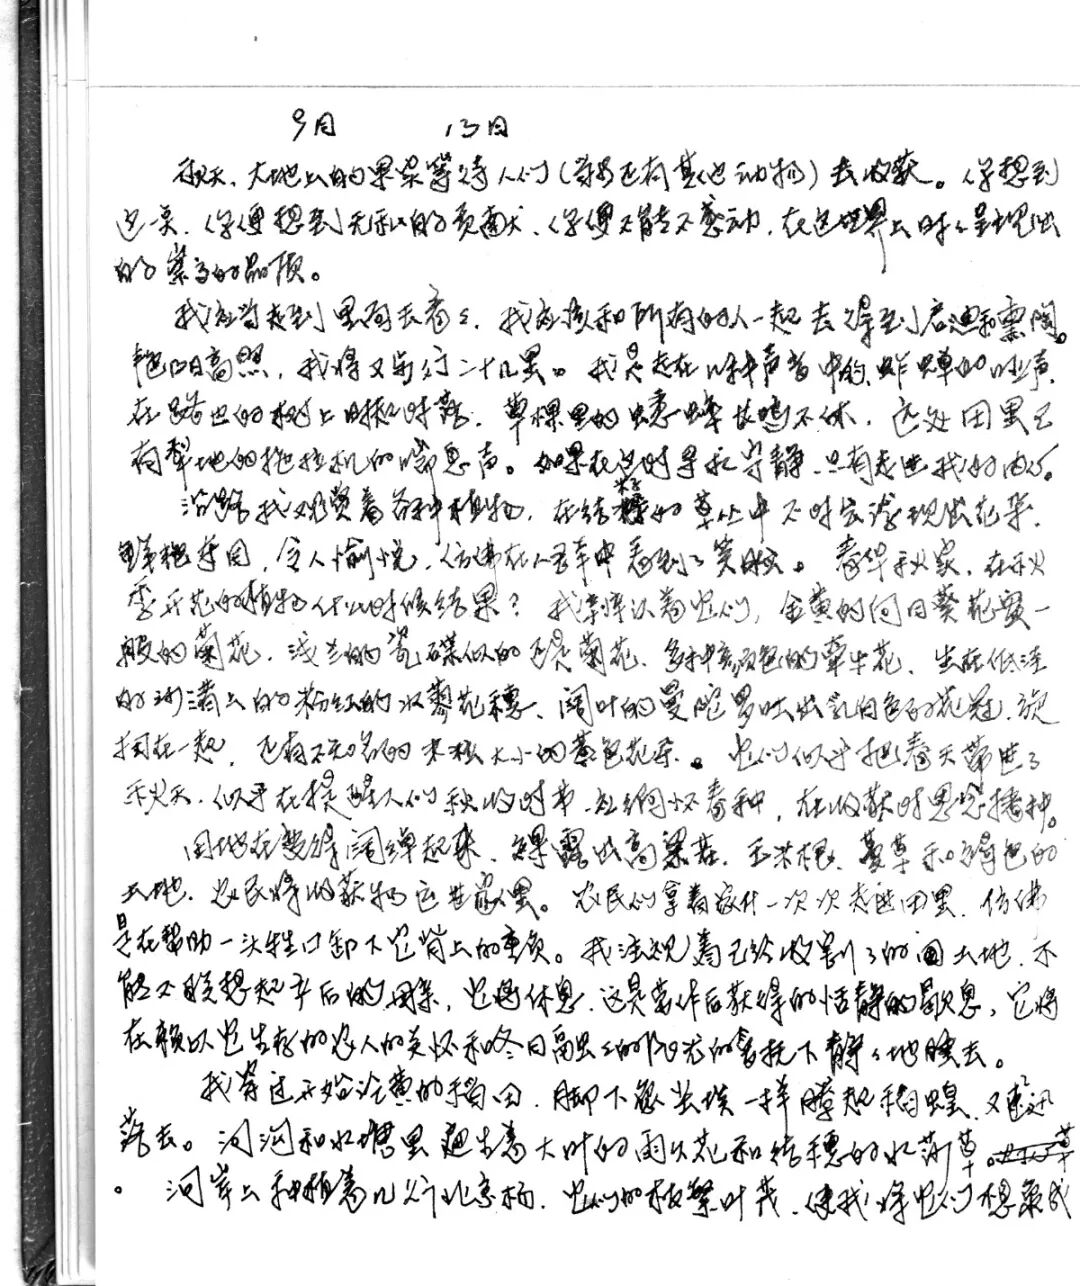 9月 13日
秋天，大地上的果实等待人们（当然还有其他动物）去收获。你想到
这一点，你便想到无私的贡献，你便不能不感动，在这世界上时时呈现出
的崇高的品质。
我应当走到里面去看看，我应该和所有的人一起去得到启迪和熏陶。
艳阳高照，我将又步行二十几里。我是走在几种声音中的，蚱蝉的哑声
在路边的树上时起时落，草棵里的蟋蟀长鸣不休，远处田里已
有犁地的拖拉机的喘息声。如果在这时寻求宁静，只有走进我的内心。
沿路我观赏着各种植物，在结籽的草丛中不时会发现出花朵，
令人愉悦，仿佛在人群中看到了笑脸。春华秋实，在秋
季开花的植物什么时候结果？我深深认为它们，金黄的向日葵花盘一
般的菊花，浅兰的瓷碟似的野菊花，多种颜色的牵牛花，生在低洼
的沟渠上的粉红的水蓼花穗，阔叶的曼陀罗吐出乳白色的花冠，旋
扭在一起，还有不知名的米粒大小的黄色花朵。它们似乎把春天带进了
秋天，似乎在提醒人们秋收时节应缅怀春种，在收获时思念播种。
田地在变得阔绰起来，裸露出高粱茬、玉米根、蔓草和褐色的
土地，农民将收获物运进家里。农民们拿着家什一次次走进田里，仿佛
是在帮助一头牲口卸下它背上的重负。我注视着已经收割了的田土地，不
能不联想起产后的母亲，它将休息，这是劳作后获得的恬静的歇息，它将
在赖以它生存的农人的关怀和冬日高照的阳光的爱抚下静静地睡去。
我穿过开始泛黄的稻田，脚下像尘埃一样腾起稻蝗，又迅速
落去。河沟和水塘里还生着大叶的雨久花和结穗的水菊草
。河岸上种植着几行北京杨，它们的枝繁叶茂，使我将它们想象成